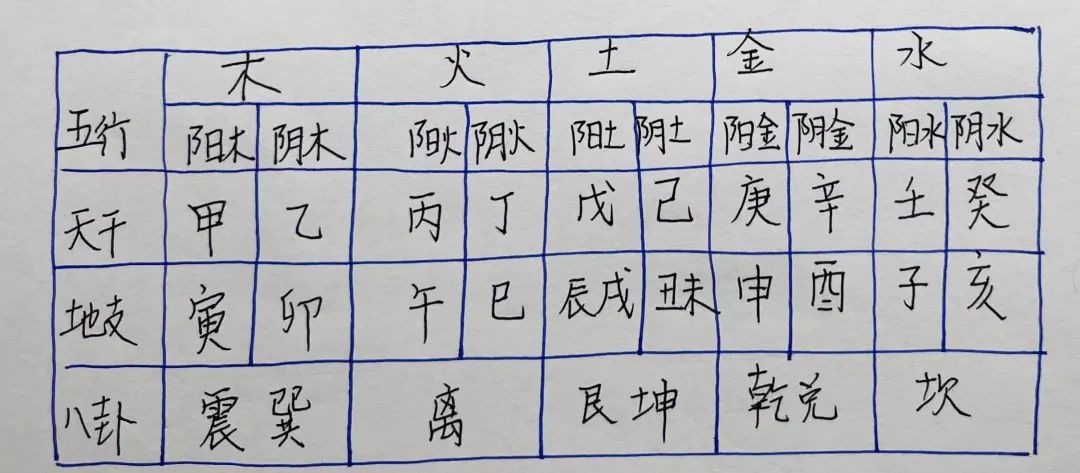 木 火 土 金 水
五行 阳木 阴木 阳火 阴火 阳土 阴土 阳金 阴金 阳水 阴水
天干 甲 乙 丙 丁 戊 己 庚 辛 壬 癸
地支 寅 卯 午 巳 辰戌 丑未 申 酉 子 亥
八卦 震 巽 离 艮 坤 乾 兑 坎